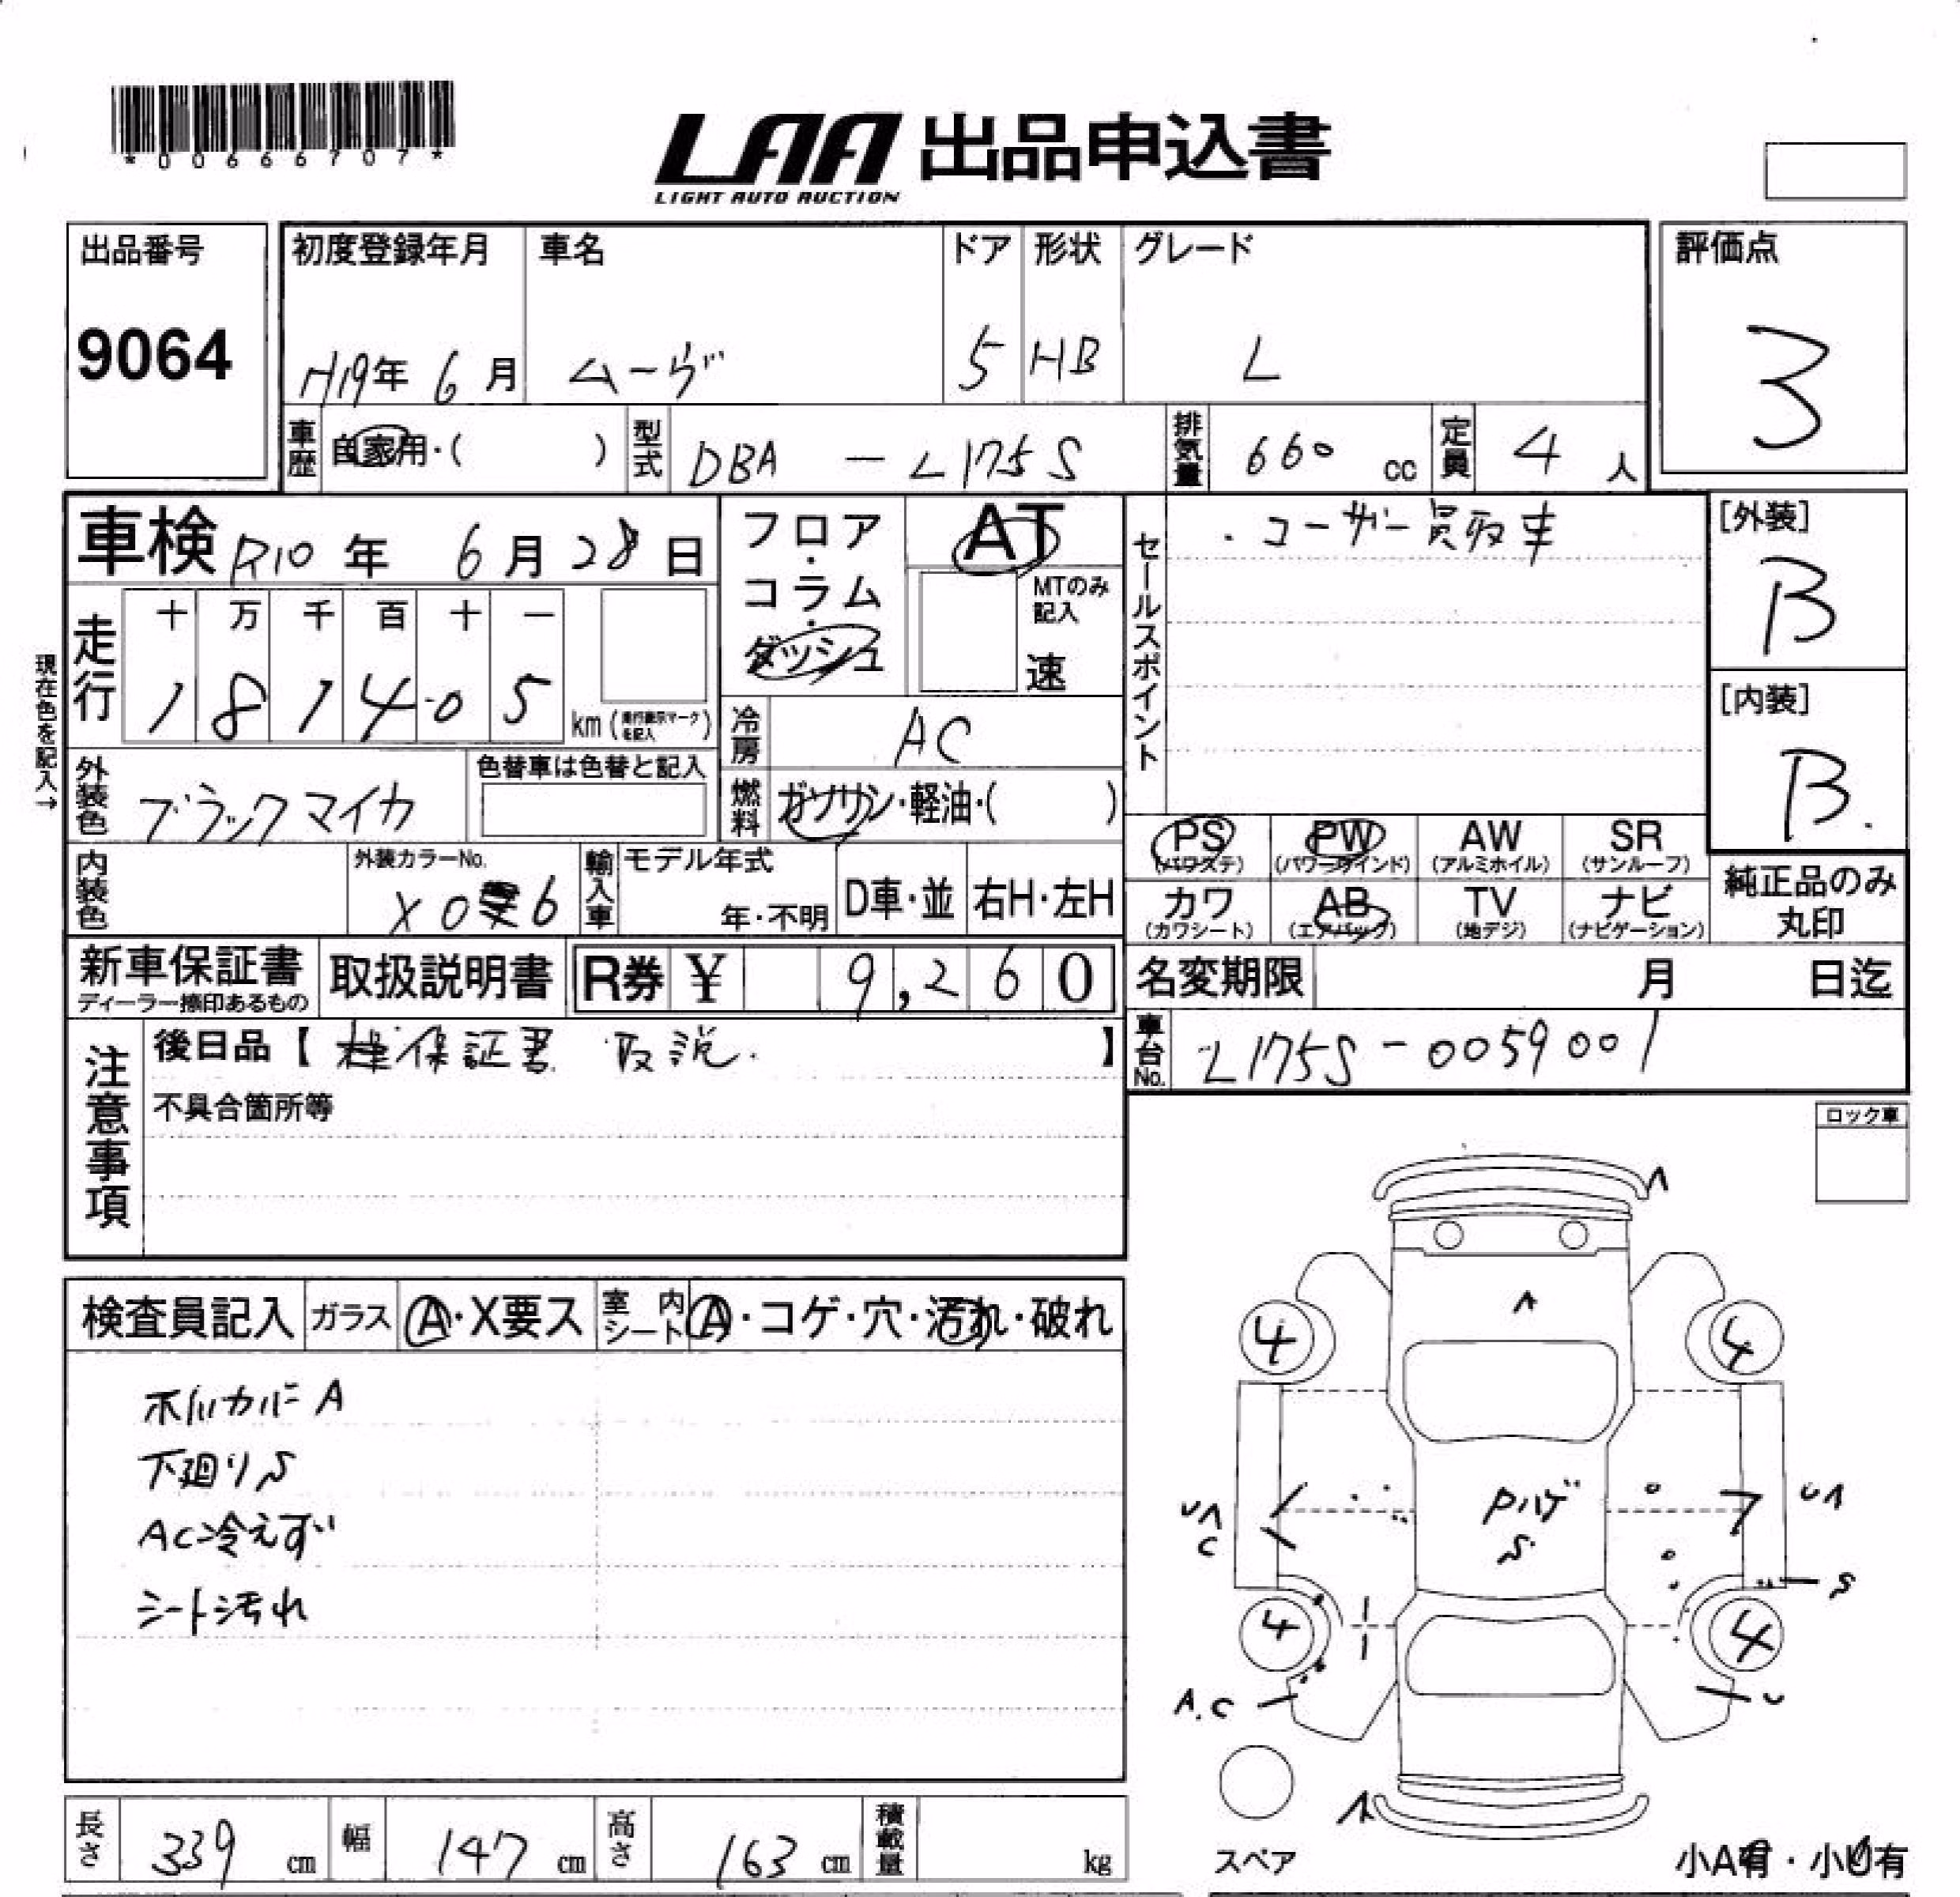 *00666707*
LAA 出品申込書
LIGHT AUTO AUCTION
出品番号 9064
初度登録年月 H19年 6月
車名 ムーヴ
ドア 5
形状 HB
グレード L
評価点 3
車歴 自家用・( )
型式 DBA - L175S
排気量 660 cc
定員 4 人
車検 R10 年 6 月 28 日
フロア・コラム・ダッシュ
AT
MTのみ記入
速
セールスポイント
・ユーザー買取車
[外装] B
[内装] B.
現在色を記入→
走行
十 万 千 百 十 一
1 8 1 4 0 5 km (走行表示マークを記入)
冷房 AC
燃料 ガソリン・軽油・( )
外装色 ブラックマイカ
色替車は色替と記入
内装色
外装カラーNo. X06
輸入車
モデル年式 年・不明
D車・並
右H・左H
PS (パワステ)
PW (パワーウインド)
AW (アルミホイル)
SR (サンルーフ)
カワ (カワシート)
AB (エアバッグ)
TV (地デジ)
ナビ (ナビゲーション)
純正品のみ丸印
新車保証書
ディーラー捺印あるもの
取扱説明書
R券 ¥ 9,260
名変期限 月 日迄
注意事項
後日品【 保証書 取説. 】
不具合箇所等
車台No. L175S-0059001
ロック車
検査員記入
ガラス A・X要ス
室内シート A・コゲ・穴・汚れ・破れ
ホイルカバーA
下廻りS
AC冷えず
シート汚れ
A
A
4 4
UA
C
PハゲS
UA
S
4 4
A.C
U
A
スペア
小A有・小U有
長さ 339 cm
幅 147 cm
高さ 163 cm
積載量 kg